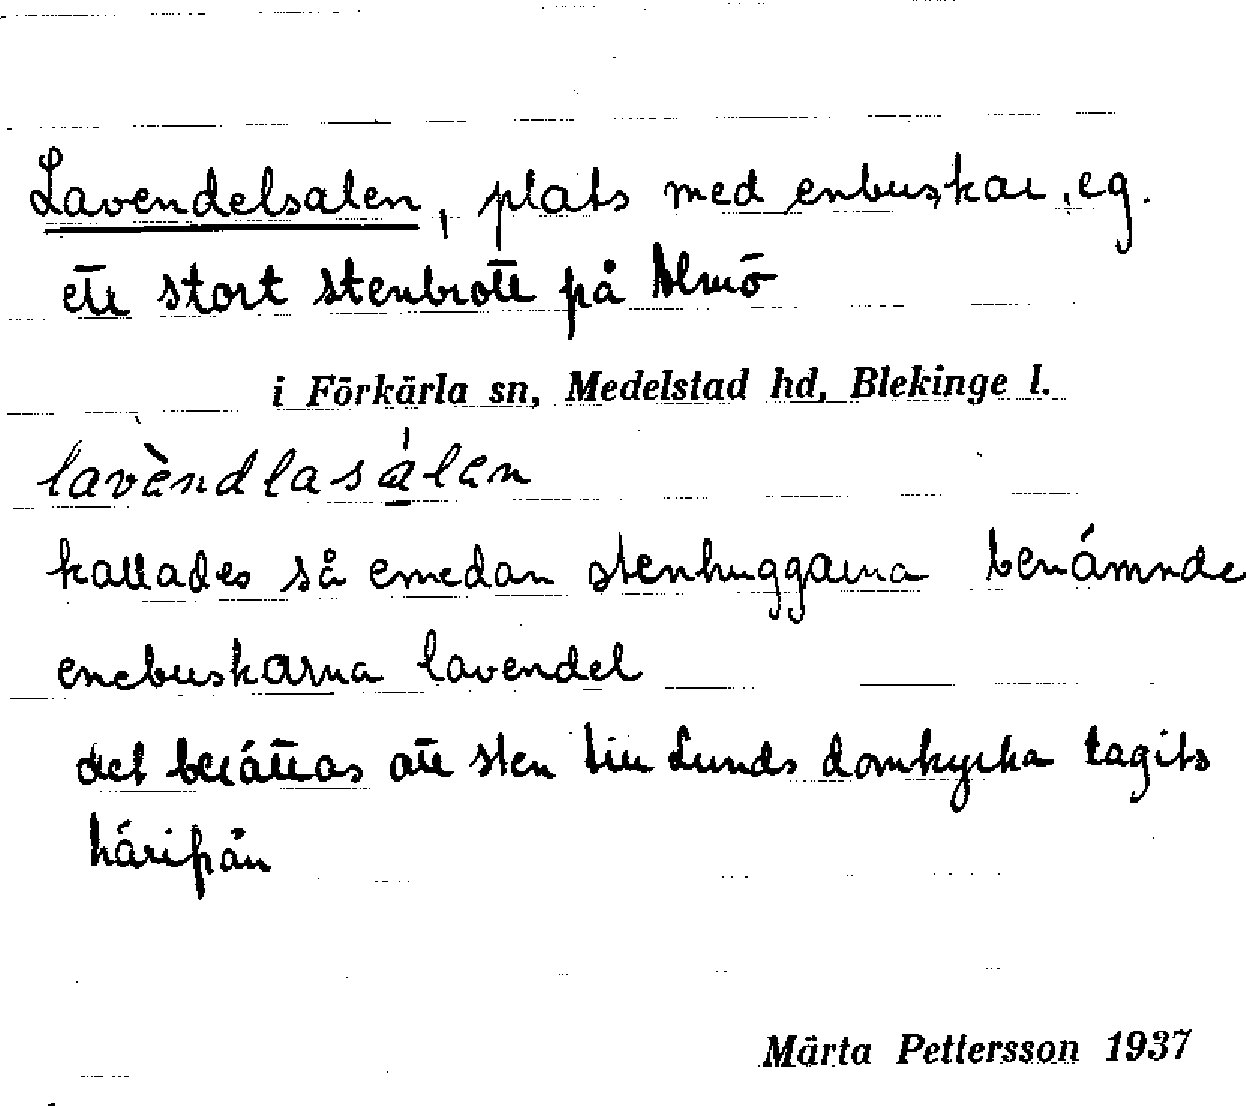 Lavendelsalen, plats med enbuskar, eg.
ett stort stenbrott på Almö
i Förkärla sn, Medelstad hd, Blekinge l.
lavèndlasálen
kallades så emedan stenhuggarna benämnde
enebuskarna lavendel
det berättas att sten till Lunds domkyrka tagits
härifrån
Märta Pettersson 1937